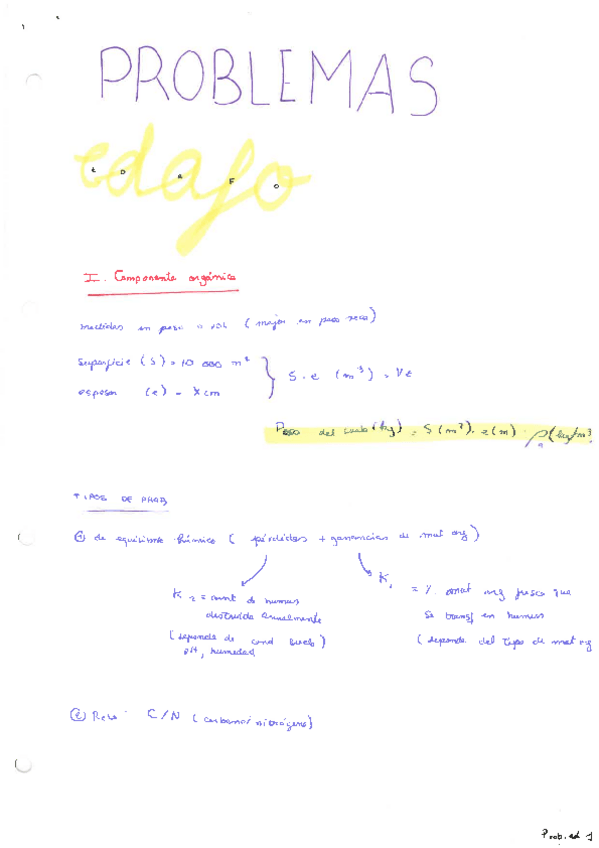 PROBLEMAS
edafo
E D A F O
I. Componente orgánico
medidas en peso o vol (mejor en peso seco)
Superficie (S) = 10 000 m²
espesor (e) = x cm
S · e (m³) = Vt
Peso del suelo (kg) = S (m²) · e (m) · ρa (kg/m³
TIPOS DE PROB
① de equilibrio húmico (pérdidas + ganancias de mat org)
K2 = cant de humus
destruida anualmente
(depende de cond suelo)
pH, humedad
K1 = % mat org fresca que
se transf en humus
(depende del tipo de mat org
② Relac C/N (carbono/nitrógeno)
Prob. ed 1